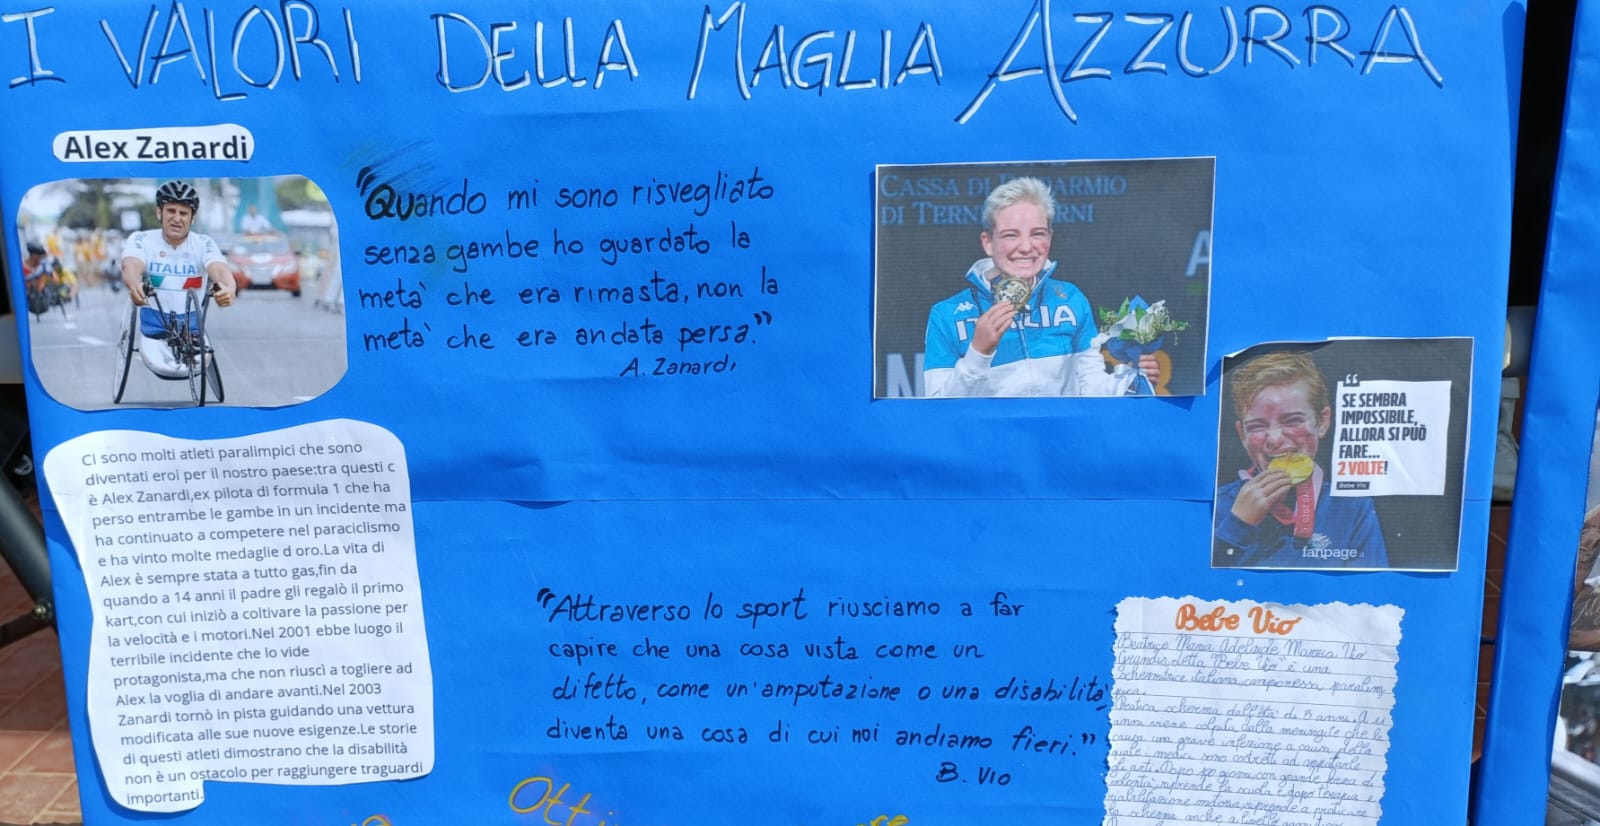 I VALORI DELLA MAGLIA AZZURRA
Alex Zanardi
ITALIA
"Quando mi sono risvegliato
senza gambe ho guardato la
metà che era rimasta, non la
metà che era andata persa."
A. Zanardi
CASSA DI RISPARMIO
DI TERNI
ITALIA
"
SE SEMBRA
IMPOSSIBILE,
ALLORA SI PUÒ
FARE...
2 VOLTE!
Bebe Vio
fanpage.it
Ci sono molti atleti paralimpici che sono
diventati eroi per il nostro paese:tra questi c
è Alex Zanardi,ex pilota di formula 1 che ha
perso entrambe le gambe in un incidente ma
ha continuato a competere nel paraciclismo
e ha vinto molte medaglie d oro.La vita di
Alex è sempre stata a tutto gas,fin da
quando a 14 anni il padre gli regalò il primo
kart,con cui iniziò a coltivare la passione per
la velocità e i motori.Nel 2001 ebbe luogo il
terribile incidente che lo vide
protagonista,ma che non riuscì a togliere ad
Alex la voglia di andare avanti.Nel 2003
Zanardi tornò in pista guidando una vettura
modificata alle sue nuove esigenze.Le storie
di questi atleti dimostrano che la disabilità
non è un ostacolo per raggiungere traguardi
importanti.
"Attraverso lo sport riusciamo a far
capire che una cosa vista come un
difetto, come un'amputazione o una disabilità,
diventa una cosa di cui noi andiamo fieri."
B. Vio
Bebe Vio
Beatrice Maria Adelaide Marzia Vio
Grandis, detta "Bebe Vio" è una
schermitrice italiana, campionessa paralim
pica.
Pratica scherma dall'età di 5 anni. A 11
anni viene colpita dalla meningite che le
causa una grave infezione a causa della
quale i medici sono costretti ad amputarle
gli arti. Dopo giorni, con grande forza di
volontà, riprende la scuola e dopo terapia e
riabilitazione motoria, riprende a praticare
la scherma anche a livello
Otti